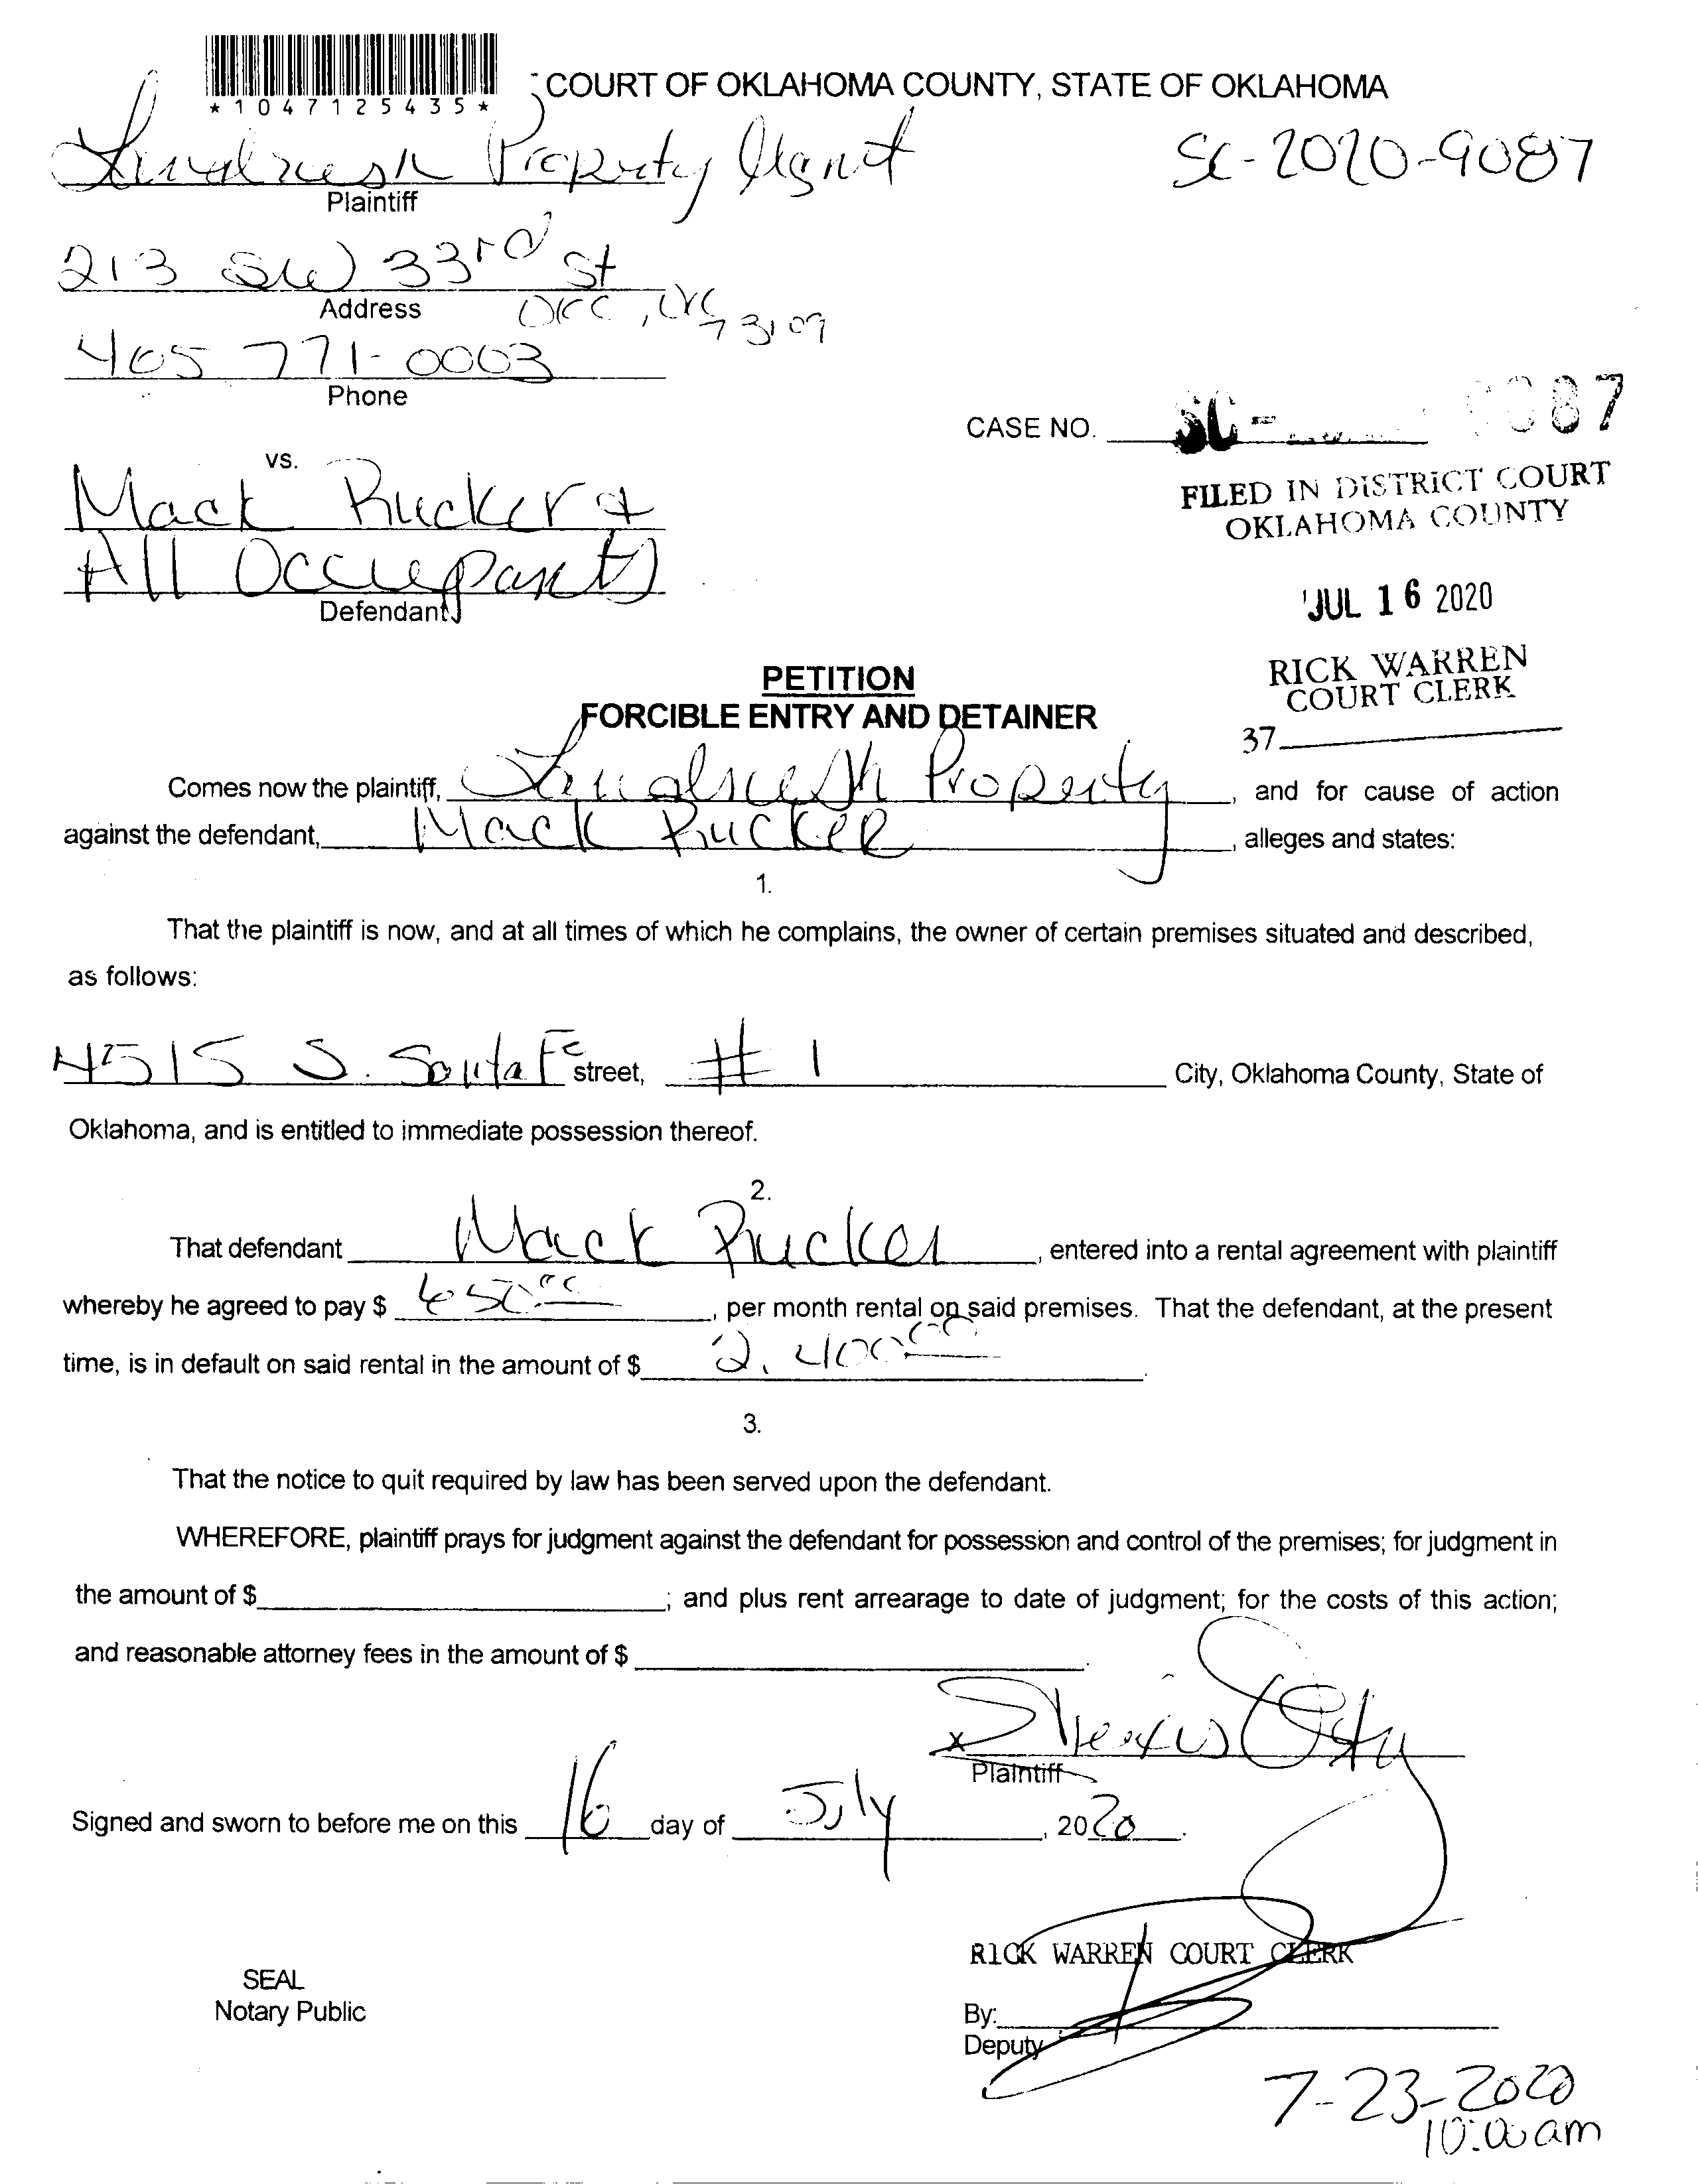 *1047125435*
COURT OF OKLAHOMA COUNTY, STATE OF OKLAHOMA
Property Mgmt
SC-2020-9087
Plaintiff
213 SW 33rd St
Address
OKC, OK 73109
405 771-0003
Phone
CASE NO. SC- 9087
vs.
Mack Rucker &
All Occupants
Defendant
FILED IN DISTRICT COURT
OKLAHOMA COUNTY
JUL 16 2020
RICK WARREN
COURT CLERK
37
PETITION
FORCIBLE ENTRY AND DETAINER
Comes now the plaintiff, Property, and for cause of action
against the defendant, Mack Rucker, alleges and states:
1.
That the plaintiff is now, and at all times of which he complains, the owner of certain premises situated and described,
as follows:
4515 S. Santa Fe street, # 1 City, Oklahoma County, State of
Oklahoma, and is entitled to immediate possession thereof.
2.
That defendant Mack Rucker, entered into a rental agreement with plaintiff
whereby he agreed to pay $ 650.00, per month rental on said premises. That the defendant, at the present
time, is in default on said rental in the amount of $ 2,400.00.
3.
That the notice to quit required by law has been served upon the defendant.
WHEREFORE, plaintiff prays for judgment against the defendant for possession and control of the premises; for judgment in
the amount of $; and plus rent arrearage to date of judgment; for the costs of this action;
and reasonable attorney fees in the amount of $.
x
Plaintiff
Signed and sworn to before me on this 16 day of July, 2020.
RICK WARREN COURT CLERK
SEAL
Notary Public
By:
Deputy
7-23-2020
10:00 am